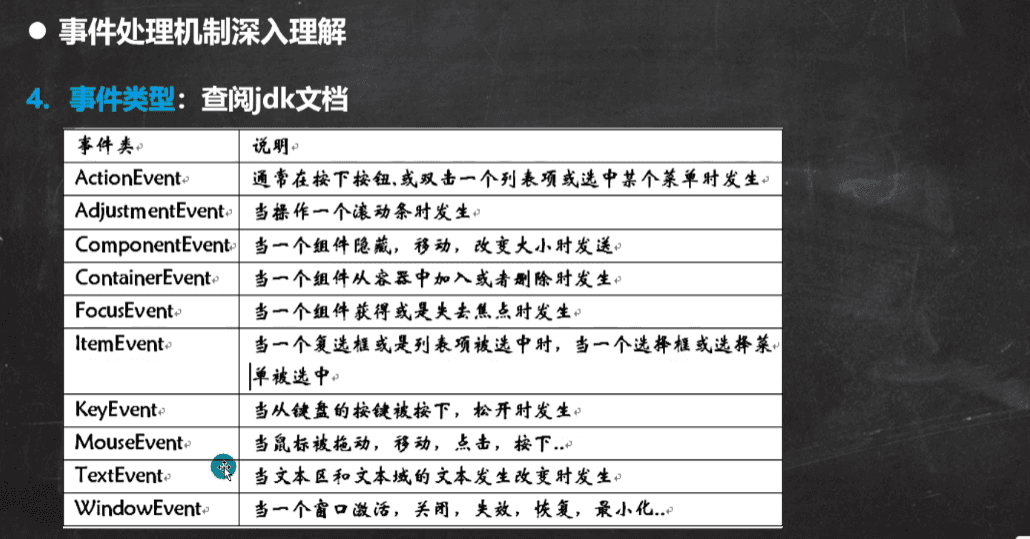 ● 事件处理机制深入理解
4. 事件类型：查阅jdk文档
事件类 说明
ActionEvent 通常在按下按钮,或双击一个列表项或选中某个菜单时发生
AdjustmentEvent 当操作一个滚动条时发生
ComponentEvent 当一个组件隐藏，移动，改变大小时发送
ContainerEvent 当一个组件从容器中加入或者删除时发生
FocusEvent 当一个组件获得或是失去焦点时发生
ItemEvent 当一个复选框或是列表项被选中时，当一个选择框或选择菜
单被选中
KeyEvent 当从键盘的按键被按下，松开时发生
MouseEvent 当鼠标被拖动，移动，点击，按下..
TextEvent 当文本区和文本域的文本发生改变时发生
WindowEvent 当一个窗口激活，关闭，失效，恢复，最小化..